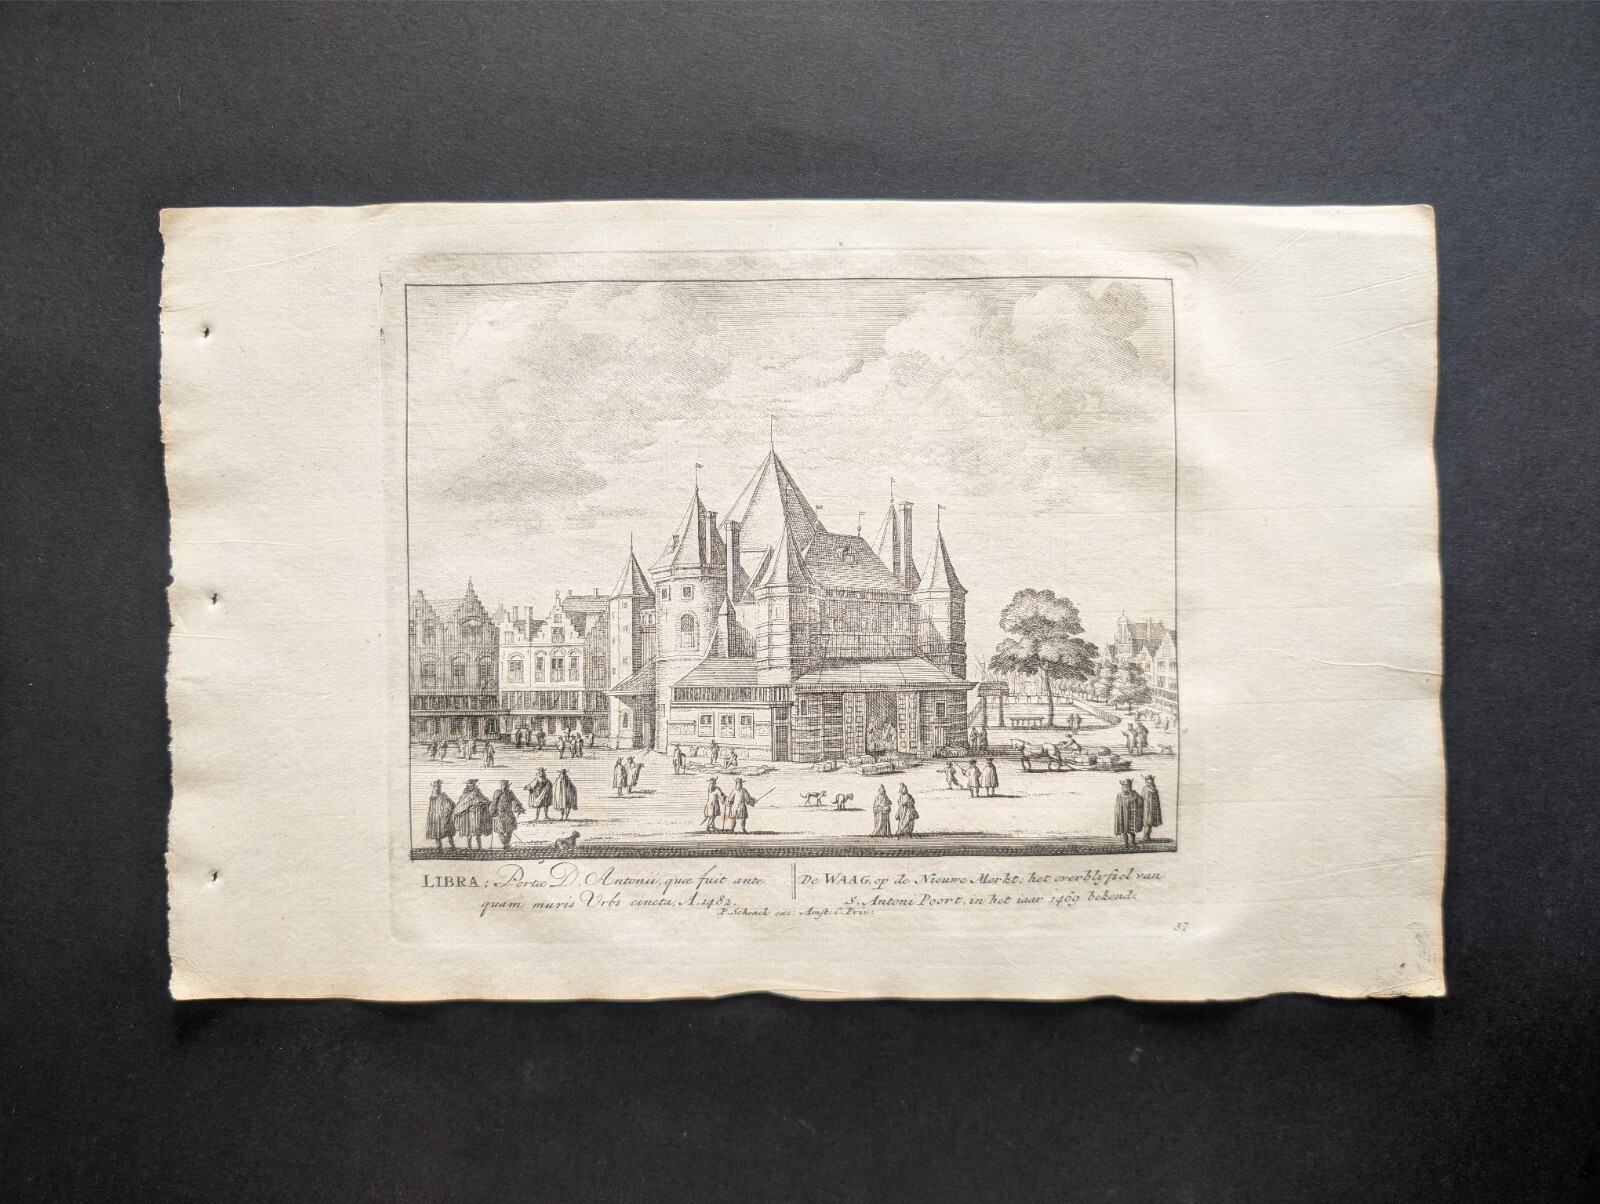 LIBRA; Portæ D. Antonii, quæ fuit ante
quam muris Urbs cincta, A. 1482.
De WAAG, op de Nieuwe Merkt; het overblyfsel van
S. Antoni Poort, in het iaar 1469 bekend.
P. Schenck exc: Amst: C. Priv:
37